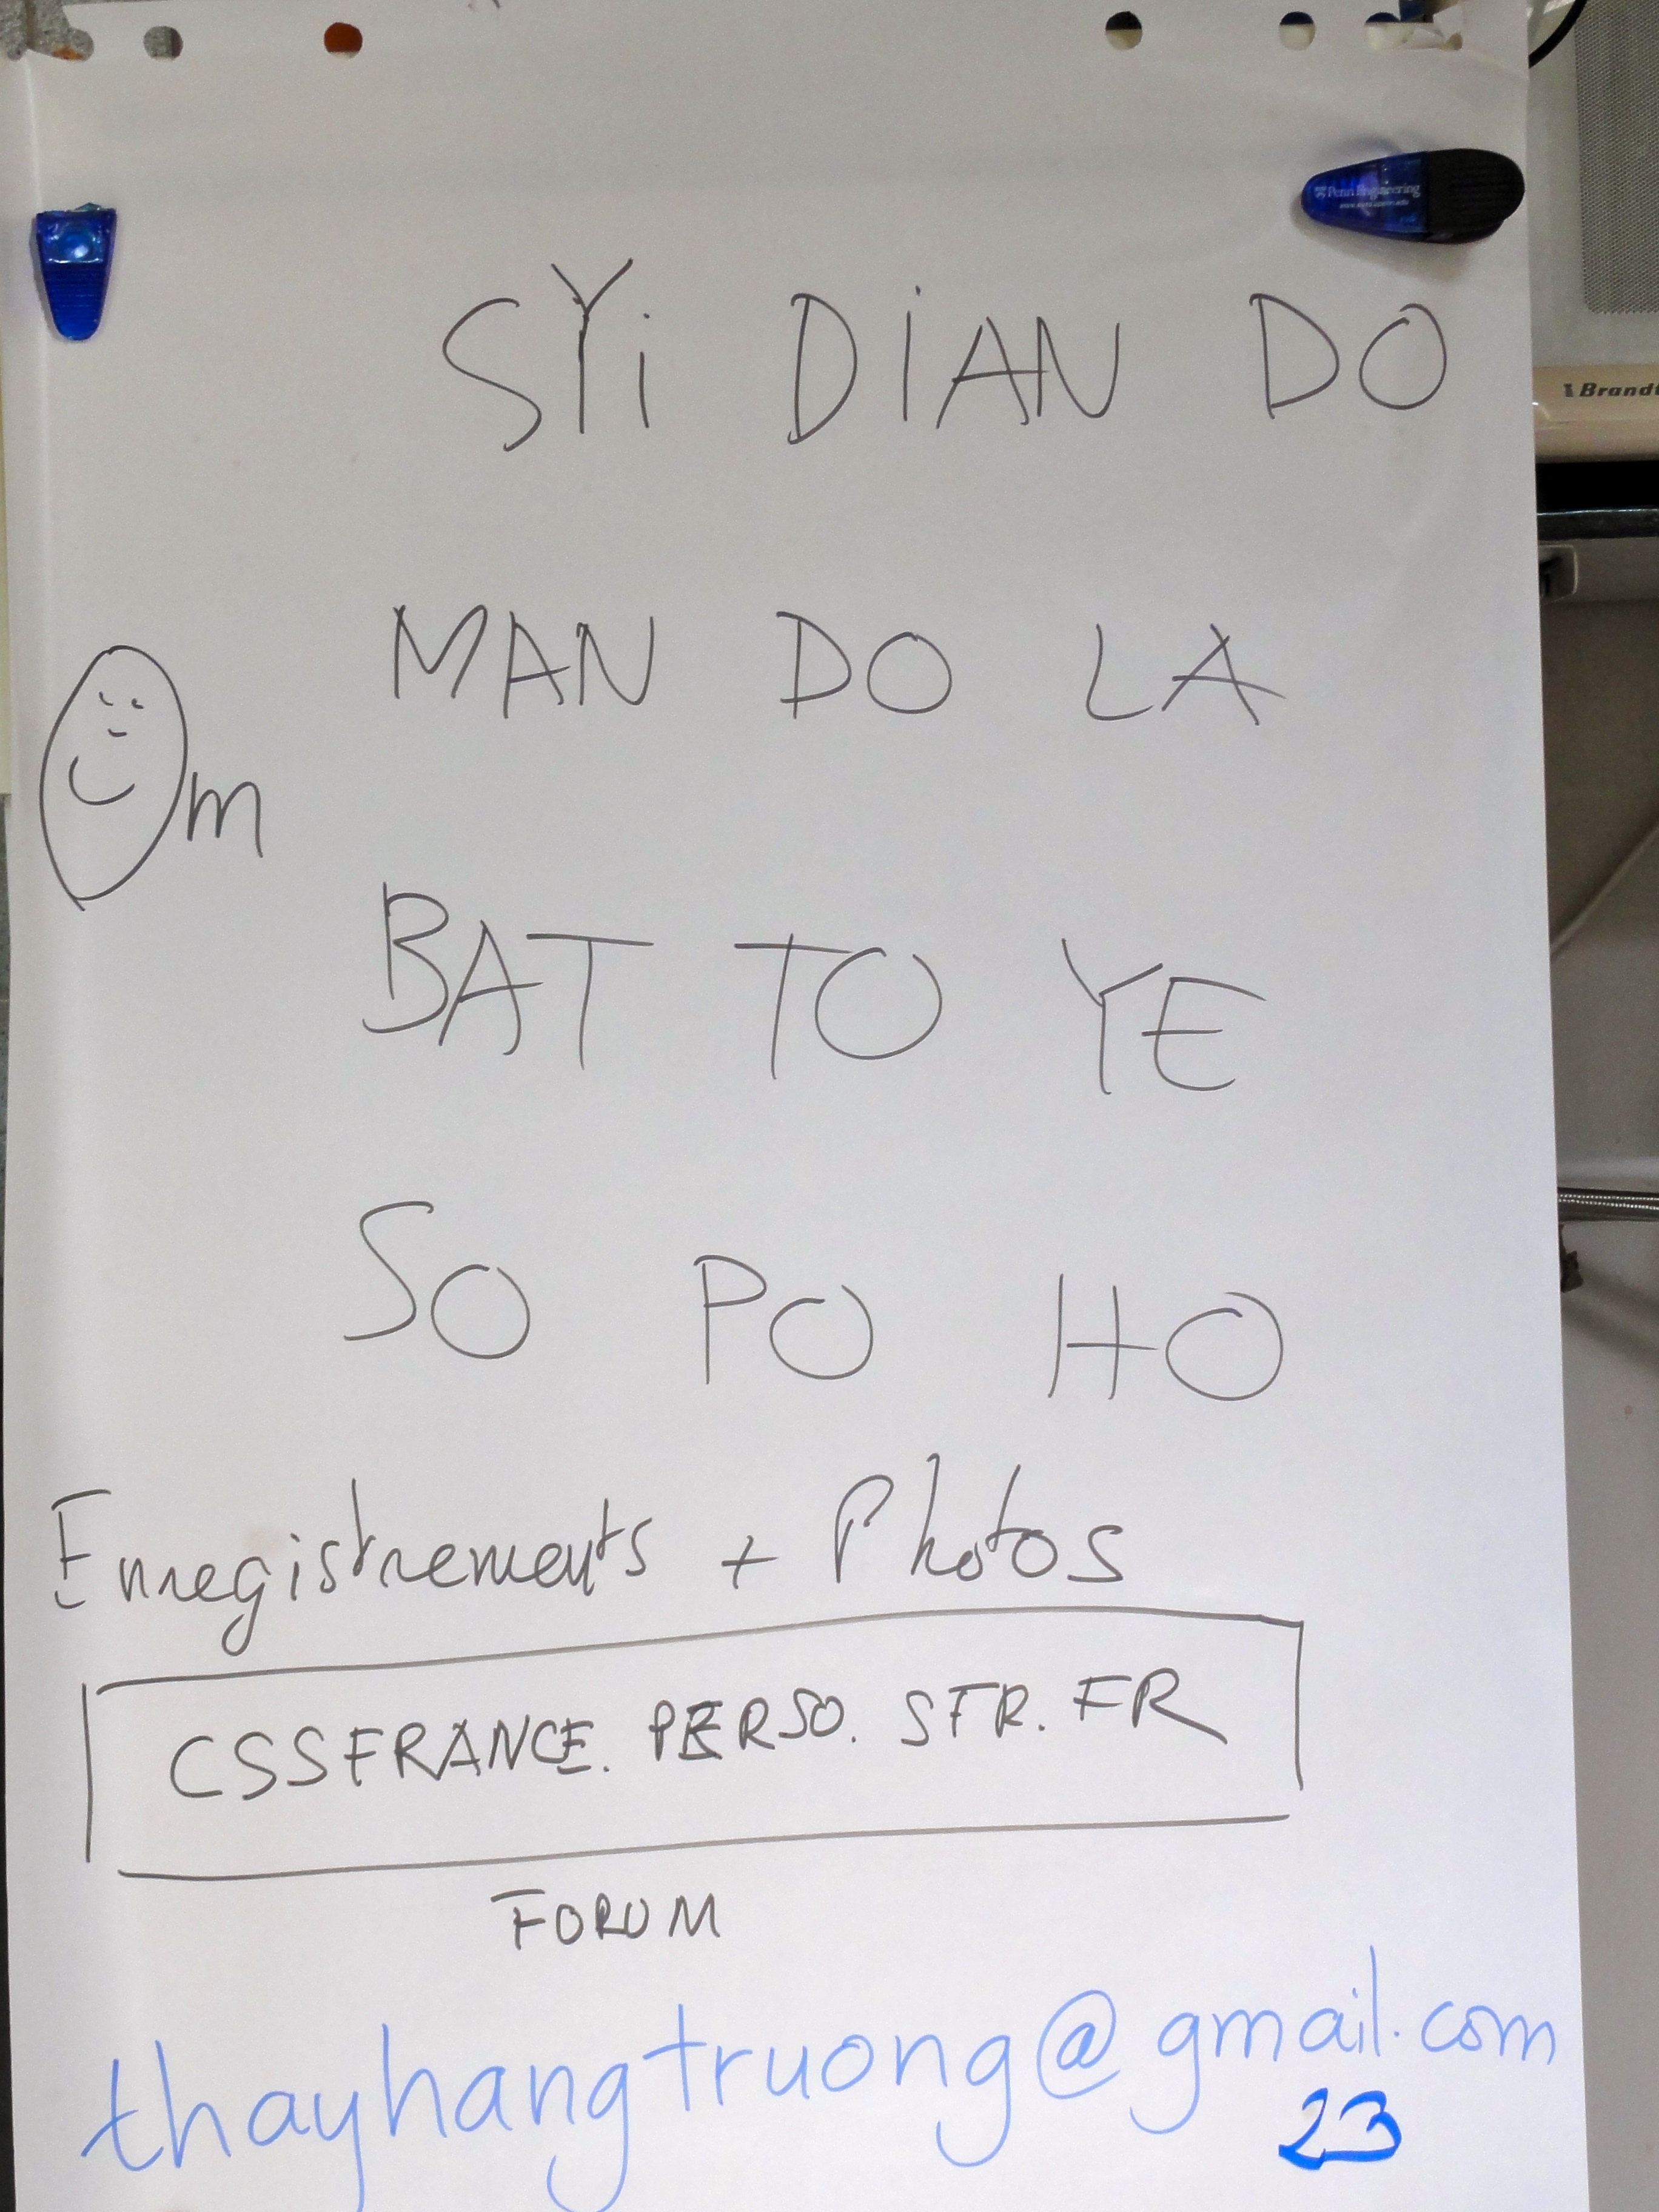 Penn Engineering
SYi DiAN DO
Brandt
MAN DO LA
Om
BAT TO YE
SO PO HO
Enregistrements + Photos
CSSFRANCE. PERSO. SFR. FR
FORUM
thayhangtruong@gmail.com
23